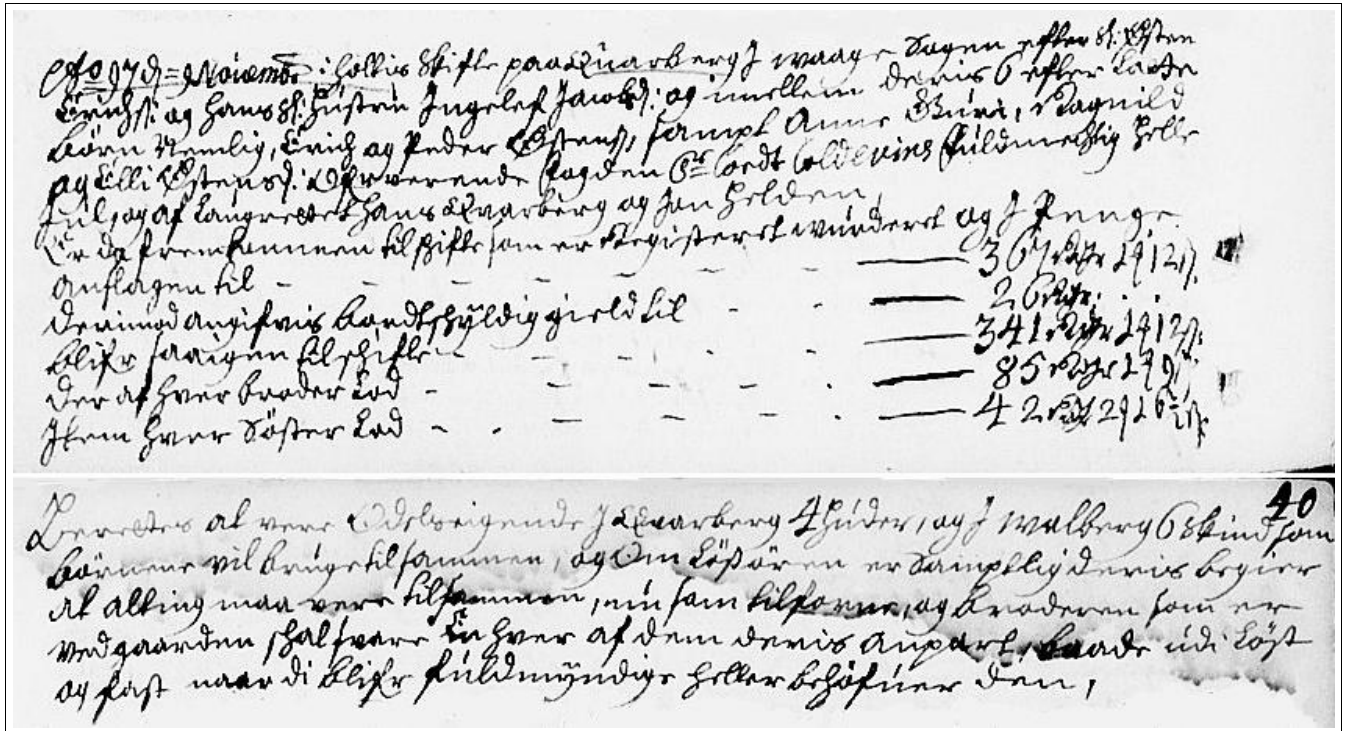 Ao 97 d= 9 Novembr: holtis Skifte paa Quarberg J waage Sogen efter Sl: Østen
Erichs: og hans Sl: Hüstrü Ingelef Jacobsd: og imellem deris 6 efter Ladte
börn Nemlig, Erich og Peder Østens, sampt Anne Güri, Ragnild
og Elli Østensd: Ofververende fogden Coldevins füldmechtig Helle
Jul, og af Laugrettet Hans Qvarberg og Jon Helden,
Er da fremkommen til schifte som er Registeret würderet og J Penge
anslagen til - - - - - 367 Rdr 2 12 s:
derimod angifvis bordtschÿldig gield til - - 26 Rdr:
blifr saa igen til schifte - - - 341 Rdr 2 12 s:
der af hver broder Lod - - - - 85 Rdr 1 9 s:
Item hver Söster Lod - - - - - 42 Rdr 2 16½ s:
40
Berettes at vere Odels eigende J Qvarberg 4 Hüder, og J walberg 6 skind som
börnene vil brüge tilsammen, og Om Lösören er Samptlig deris begier
at alting maa vere tilsammen, nü som tilforne, og broderen som er
ved gaarden schal svare En hver af dem deris anpart, baade üdi Löst
og fast naar di blifr füldmÿndige heller behöfüer den,